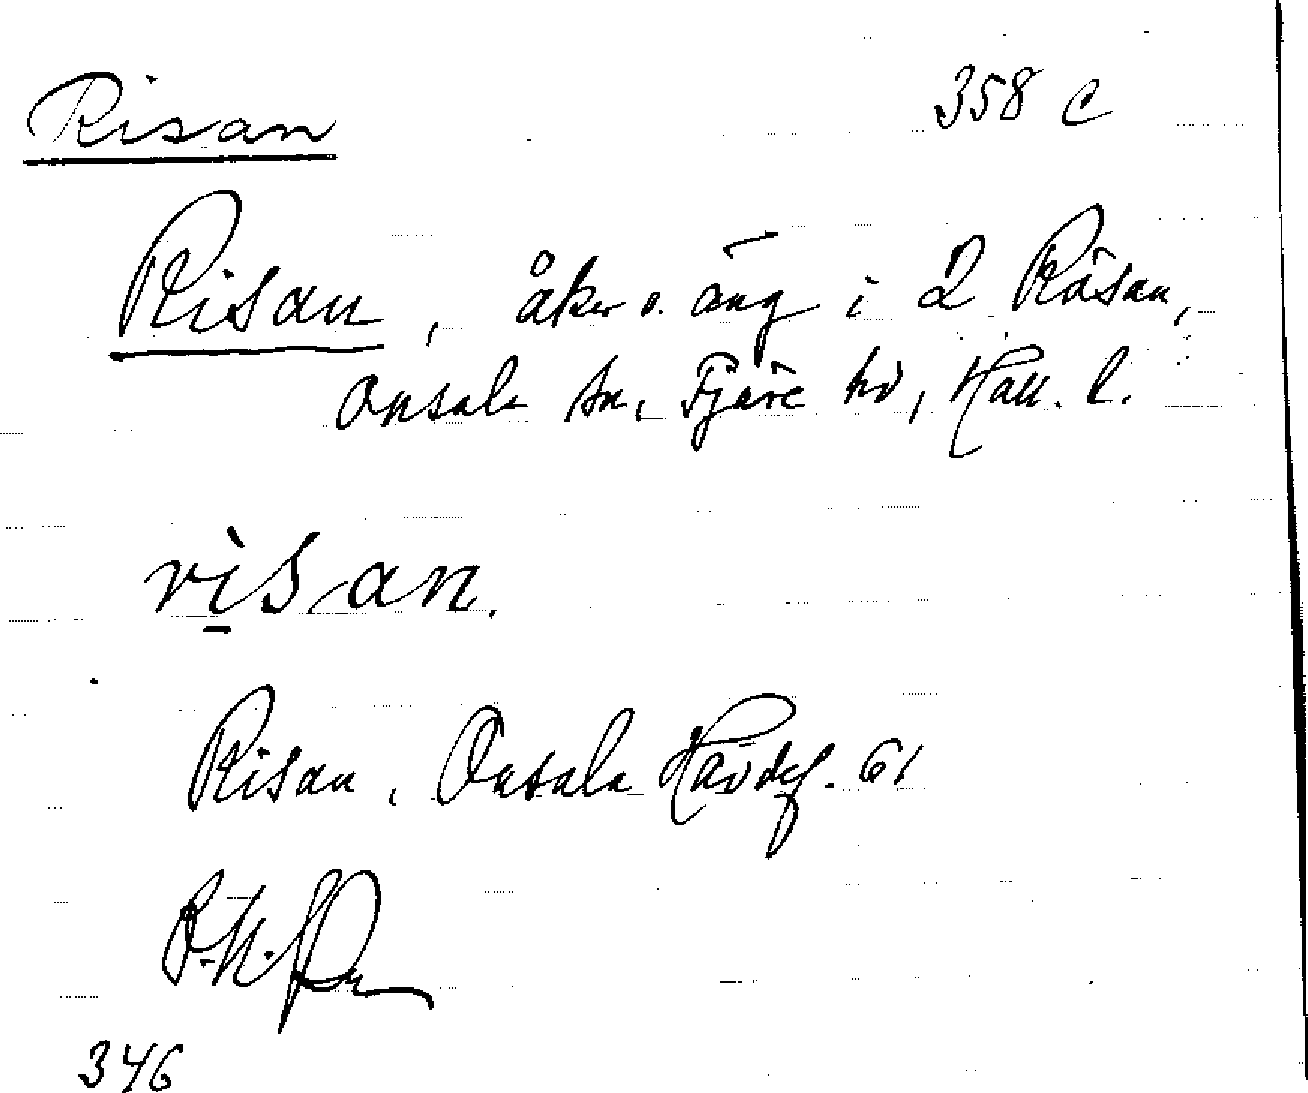 Risan 358 C
Risan, åker o. äng i 2 Råsan,
Onsala sn, Fjäre hd, Hall. l.
rìs an.
Risan, Onsala Havdhf. 61
346